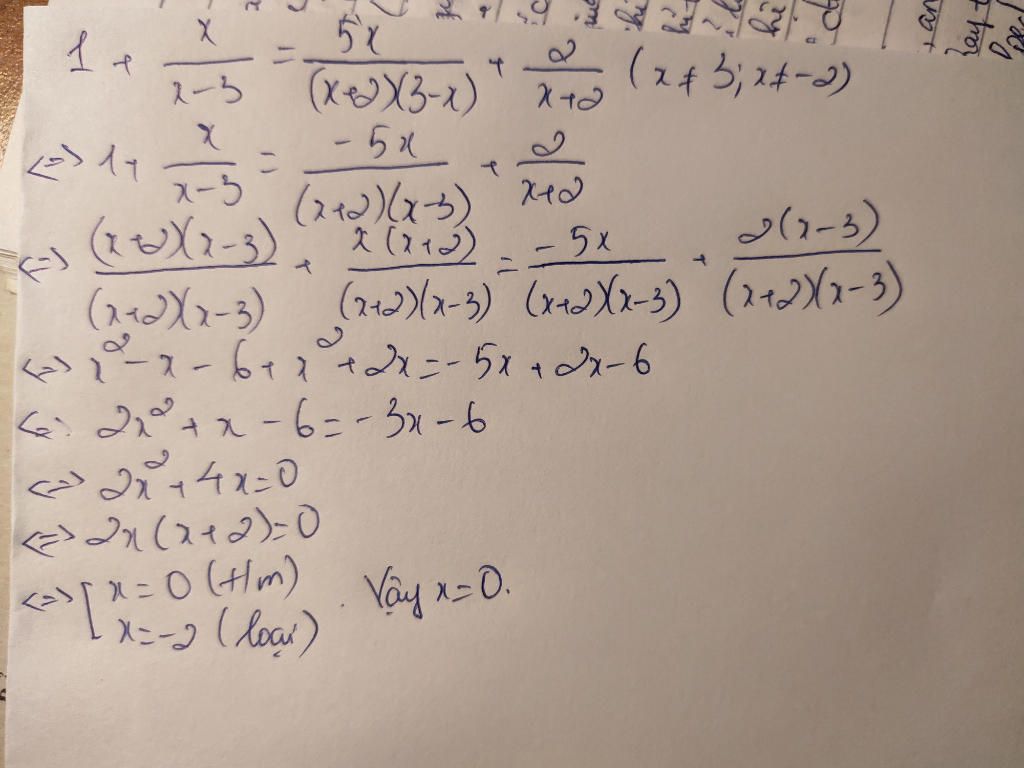 1 + x/(x-3) = 5x/((x+2)(3-x)) + 2/(x+2) (x ≠ 3; x ≠ -2)
<=> 1 + x/(x-3) = -5x/((x+2)(x-3)) + 2/(x+2)
<=> (x+2)(x-3)/((x+2)(x-3)) + x(x+2)/((x+2)(x-3)) = -5x/((x+2)(x-3)) + 2(x-3)/((x+2)(x-3))
<=> x² - x - 6 + x² + 2x = -5x + 2x - 6
<=> 2x² + x - 6 = -3x - 6
<=> 2x² + 4x = 0
<=> 2x(x+2) = 0
<=> [ x = 0 (t/m)
x = -2 (loại) . Vậy x = 0.